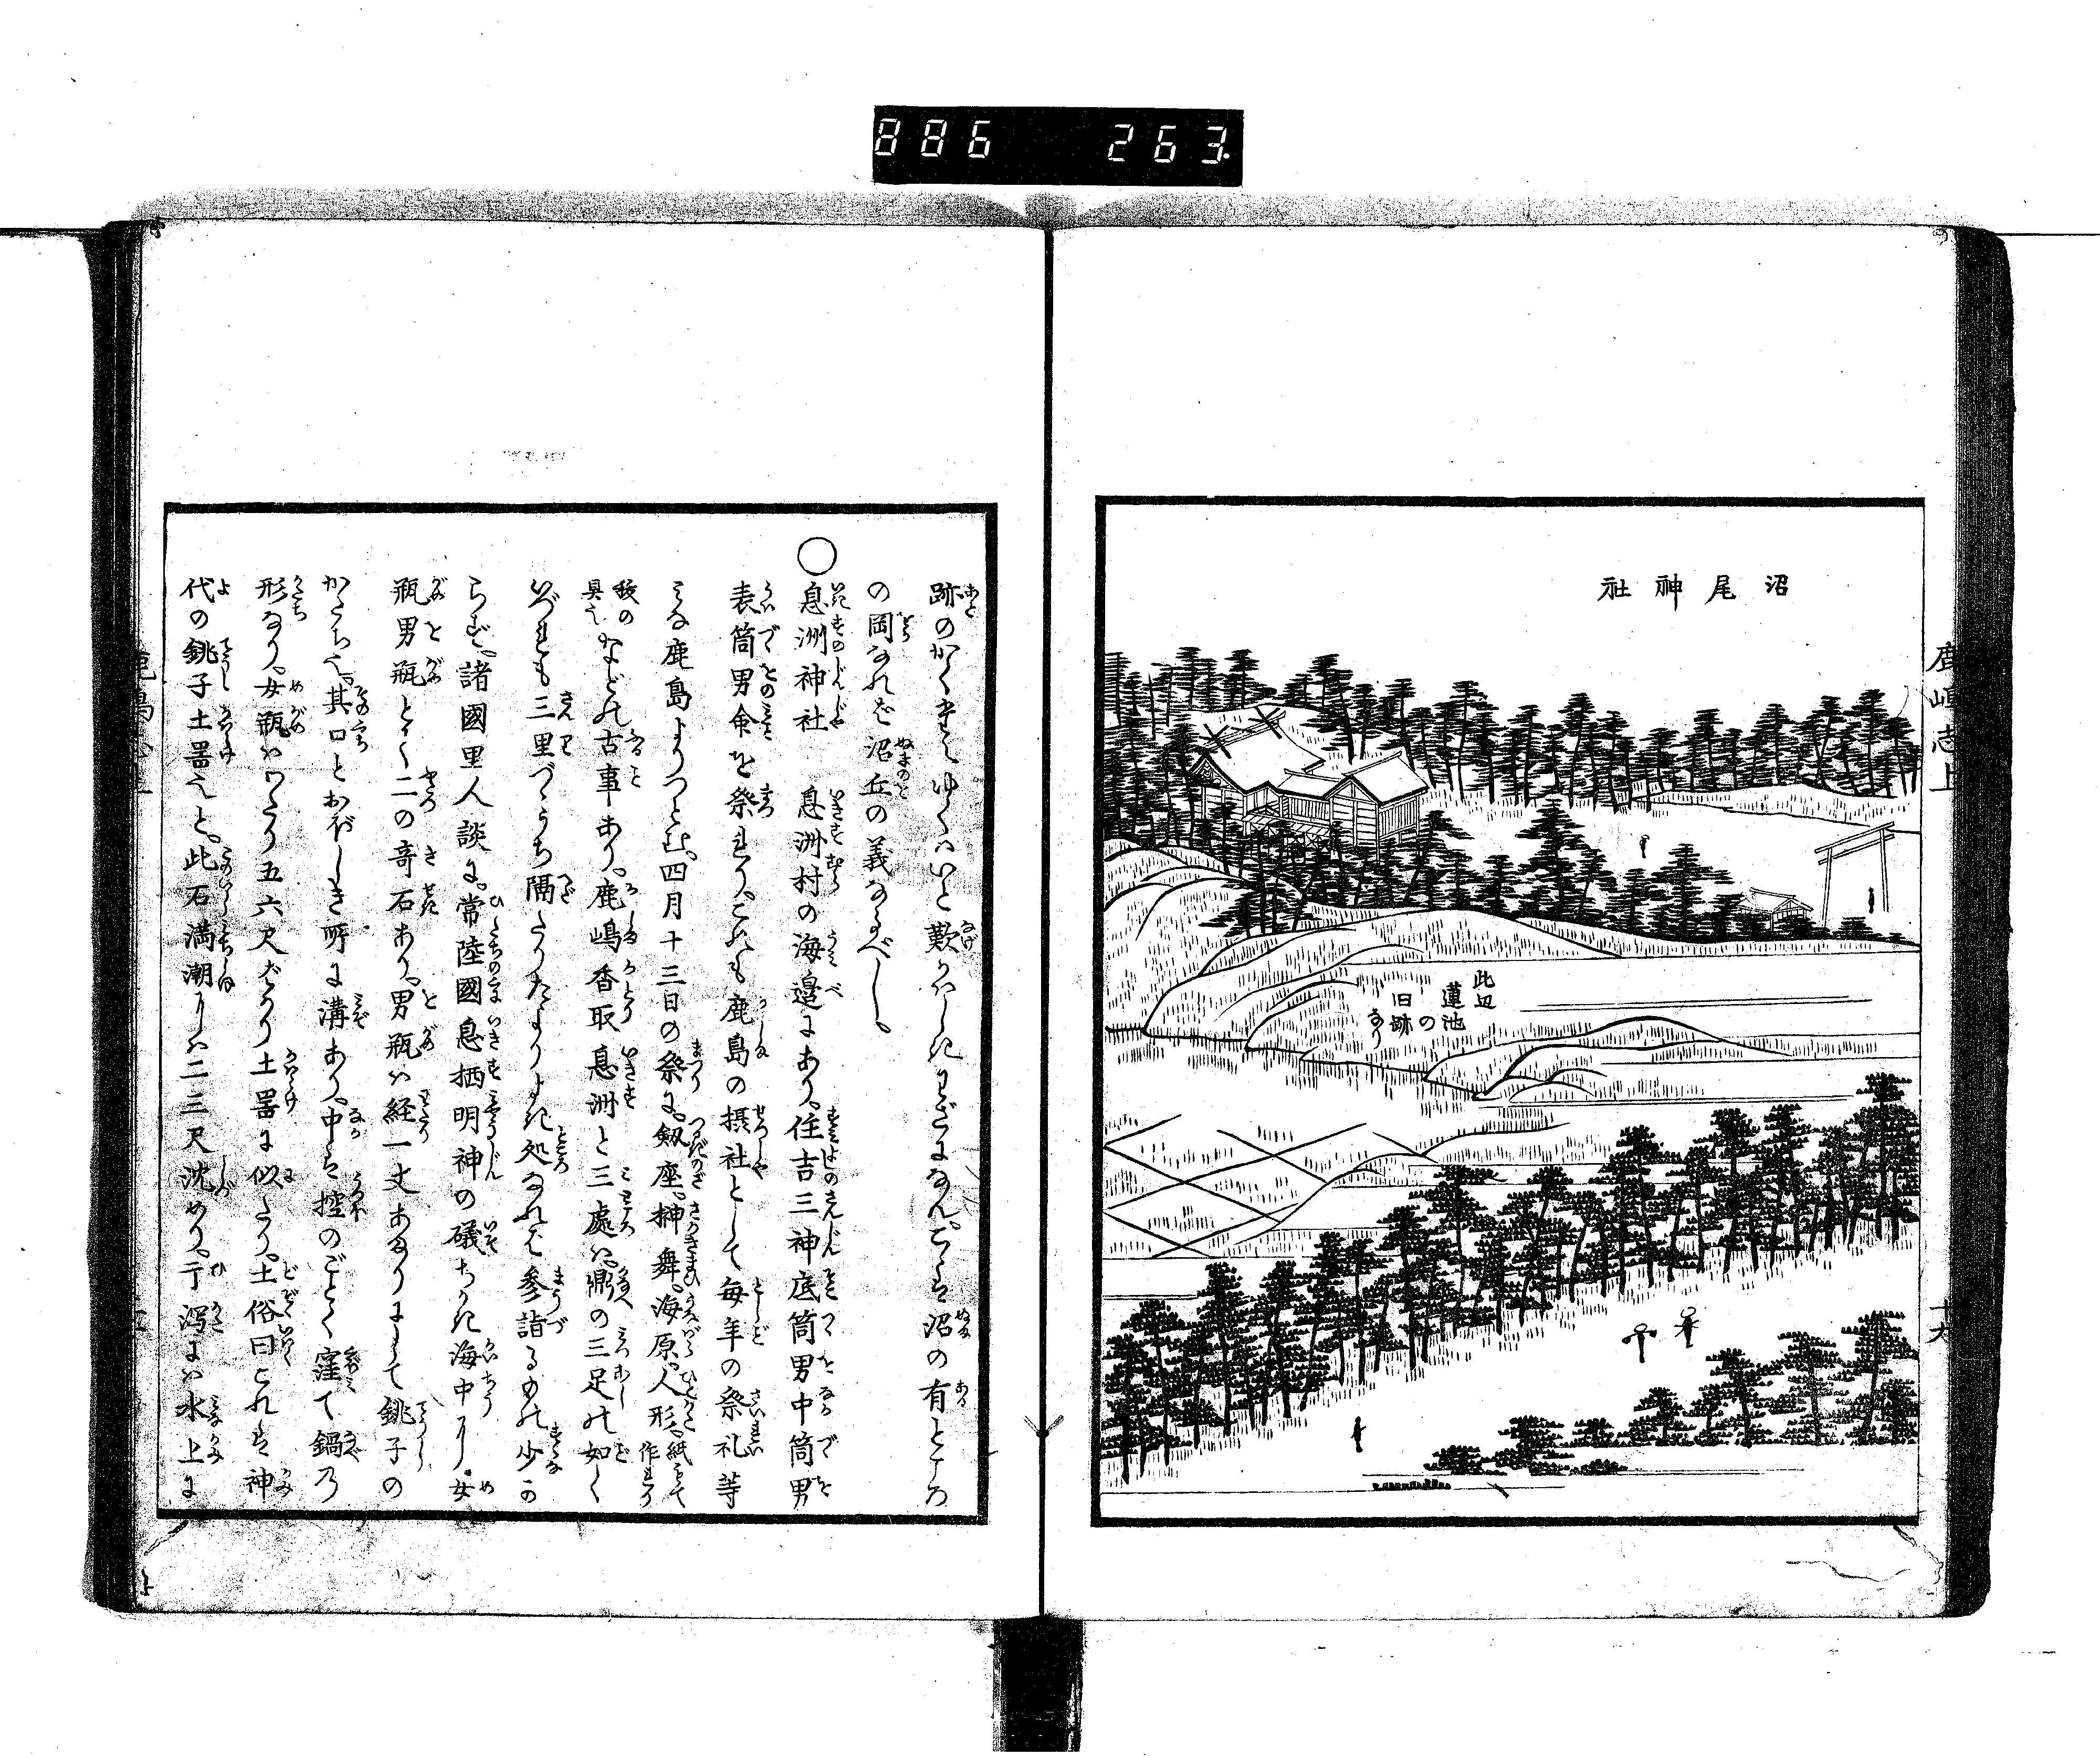 886 263
鹿嶋志上
十六
沼尾神社
此辺
蓮池
の
旧跡
なり
跡のかくれてゆくハいと歎かはしきわざになん。こゝは沼の有ところ
の岡なれば沼丘の義なるべし。
○息洲神社 息洲村の海邉にあり。住吉三神底筒男中筒男
表筒男命を祭れり。これも鹿島の摂社として毎年の祭礼等
みな鹿島よりつとむ。四月十三日の祭に。剱座。榊舞。海原。人形。紙をもて作れる
などの古事あり。鹿嶋香取息洲と三處ハ。鼎の三足の如く
いづれも三里づゝうち隔たりたよりよき処なれば参詣るもの少か
らず。諸國里人談に。常陸國息栖明神の礒ちかき海中に。女
瓶男瓶とて二の竒石あり。男瓶ハ経一丈あまりにして銚子の
かたち也。其口とおぼしき所に溝あり。中は控のごとく窪て鍋乃
形なり。女瓶ハわたり五六尺ばかり土器に似たり。土俗曰これは神
代の銚子土器也と。此石満潮にハ二三尺沈めり。干潟にハ水上に